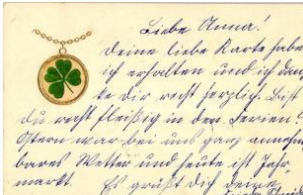 Liebe Anna!
Deine liebe Karte habe
ich erhalten und ich dan
ke dir recht herzlich. Bist
du recht fleißig in den Ferien?
Ostern war bei uns ganz annehm
bares Wetter und heute ist Jahr
markt. Es grüßt dich deine